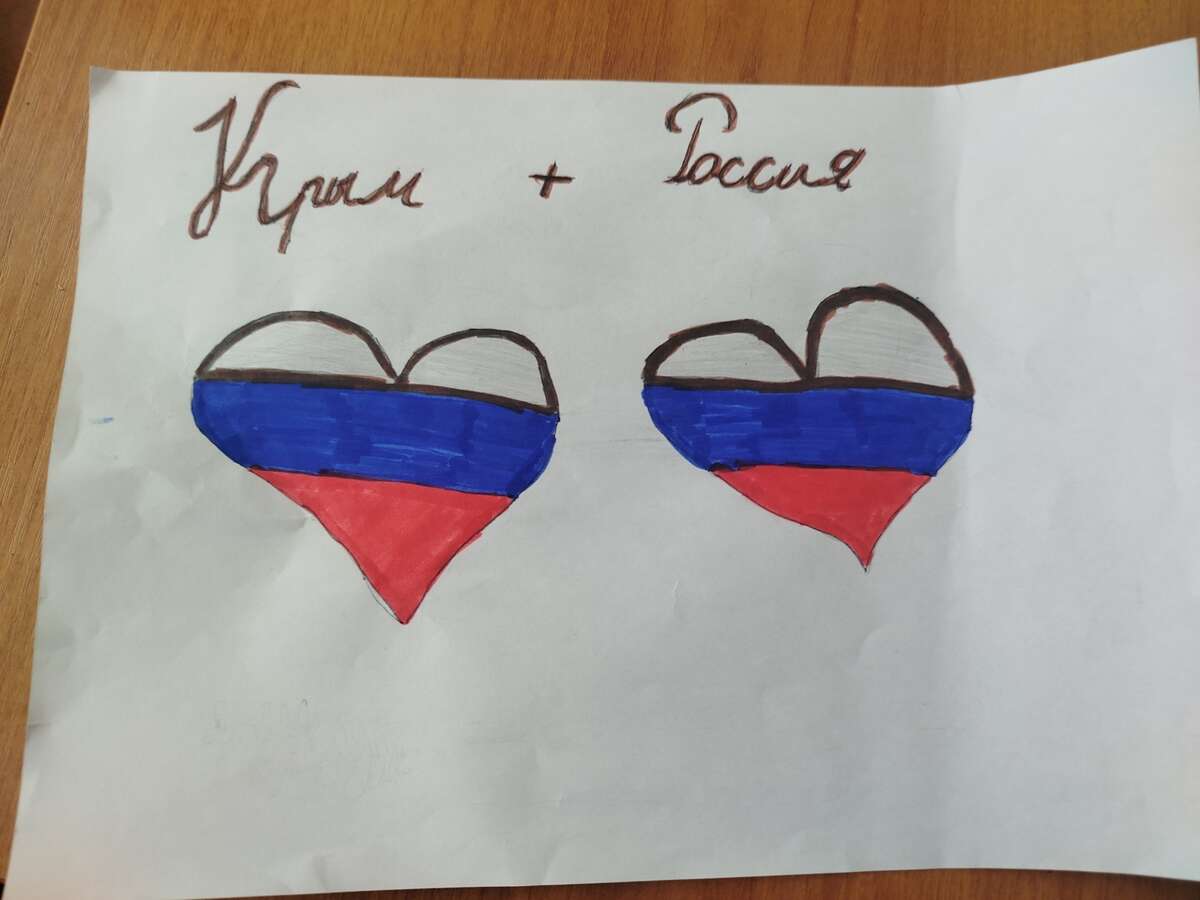 Крым + Россия